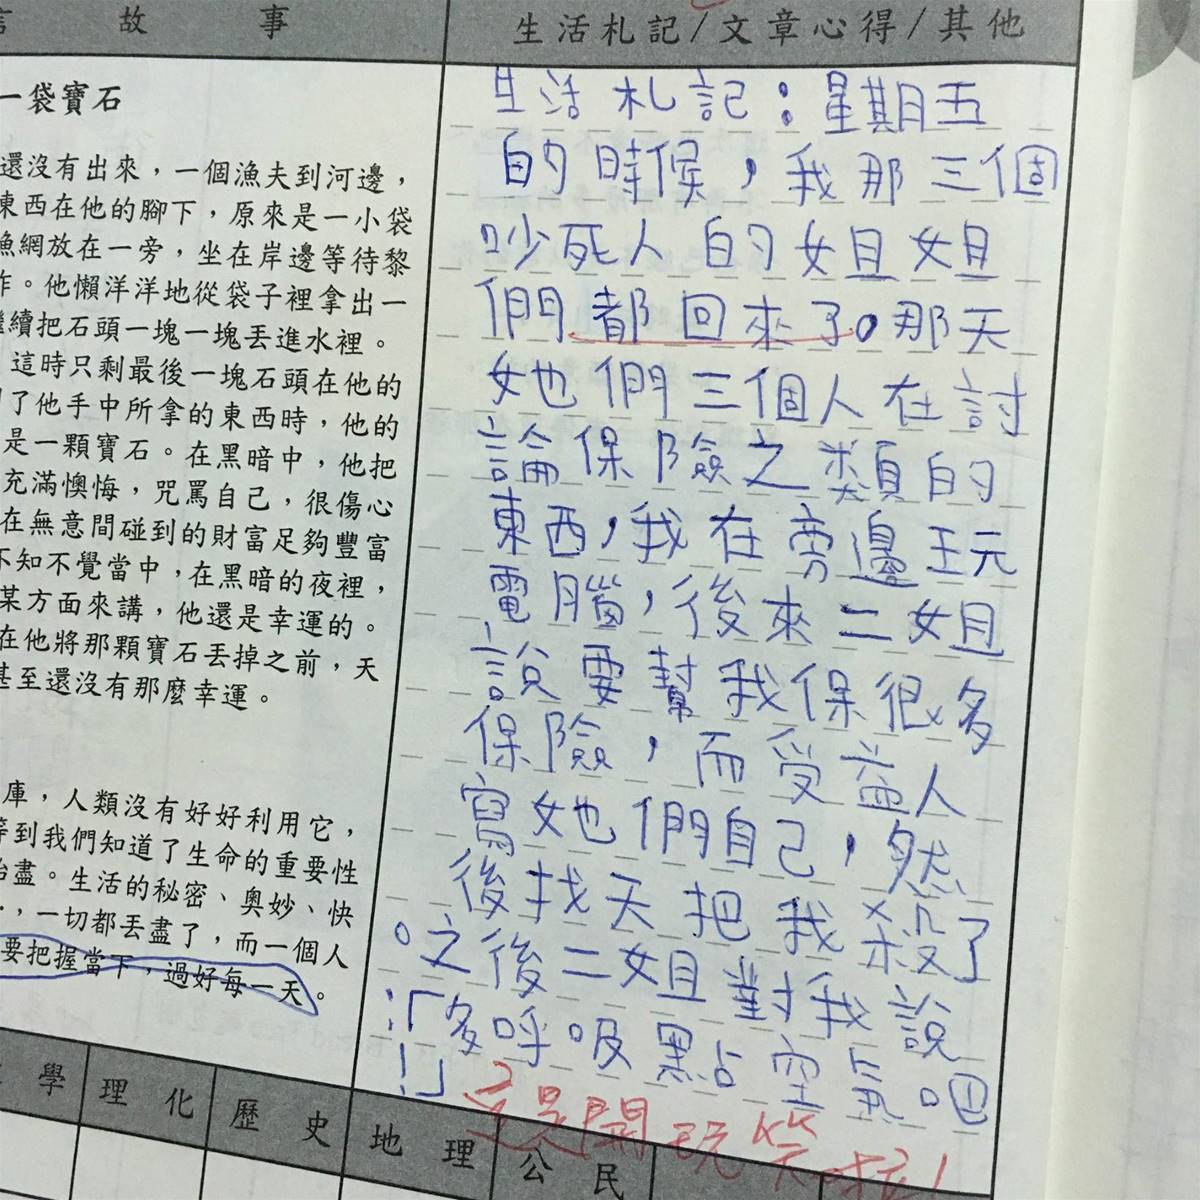 言故事
一袋寶石
還沒有出來，一個漁夫到河邊，
東西在他的腳下，原來是一小袋
漁網放在一旁，坐在岸邊等待黎
作。他懶洋洋地從袋子裡拿出一
繼續把石頭一塊一塊丟進水裡。
這時只剩最後一塊石頭在他的
了他手中所拿的東西時，他的
是一顆寶石。在黑暗中，他把
充滿懊悔，咒罵自己，很傷心
在無意間碰到的財富足夠豐富
不知不覺當中，在黑暗的夜裡，
某方面來講，他還是幸運的。
在他將那顆寶石丟掉之前，天
甚至還沒有那麼幸運。
庫，人類沒有好好利用它，
等到我們知道了生命的重要性
殆盡。生活的秘密、奧妙、快
，一切都丟盡了，而一個人
要把握當下，過好每一天。
生活札記/文章心得/其他
生活札記：星期五
的時候，我那三個
吵死人的姐姐
們都回來了。那天
她們三個人在討
論保險之類的
東西，我在旁邊玩
電腦，後來二姐
說要幫我保很多
保險，而受益人
寫她們自己，然
後找天把我殺了
。之後二姐對我說
：「多呼吸點空氣吧
！」
這是開玩笑啦！
學 理化 歷史 地理 公民